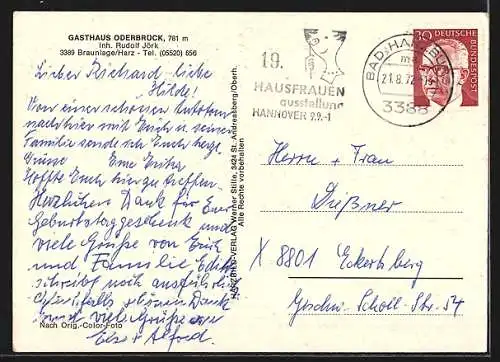 GASTHAUS ODERBRÜCK, 781 m
Inh. Rudolf Jörk
3389 Braunlage/Harz - Tel. (05520) 656
Lieber Richard - liebe
Hilde!
Von einer schönen Autotour
nachher mit Erich u. seiner
Familie sende ich Euch herzl.
Grüsse Eure Erika
Hoffte Euch hier zu treffen.
Herzlichen Dank für Eure
Geburtstaggeschenk und
viele Grüße von Erich
und Familie Edith
schreibt noch ausführlich
Ebenfalls schönen Dank
und viele Grüße
Else + Alfred.
Nach Orig.-Color-Foto
VERLAG Werner Stille, 3424 St. Andreasberg/Oberh.
Alle Rechte vorbehalten
19.
HAUSFRAUEN
ausstellung
HANNOVER 9.9.-1
BAD HARZBURG
21.8.72
3388
30 DEUTSCHE
BUNDESPOST
Herrn + Frau
Dießner
X 8801 Eckertsberg
Geschw.-Scholl-Str. 54